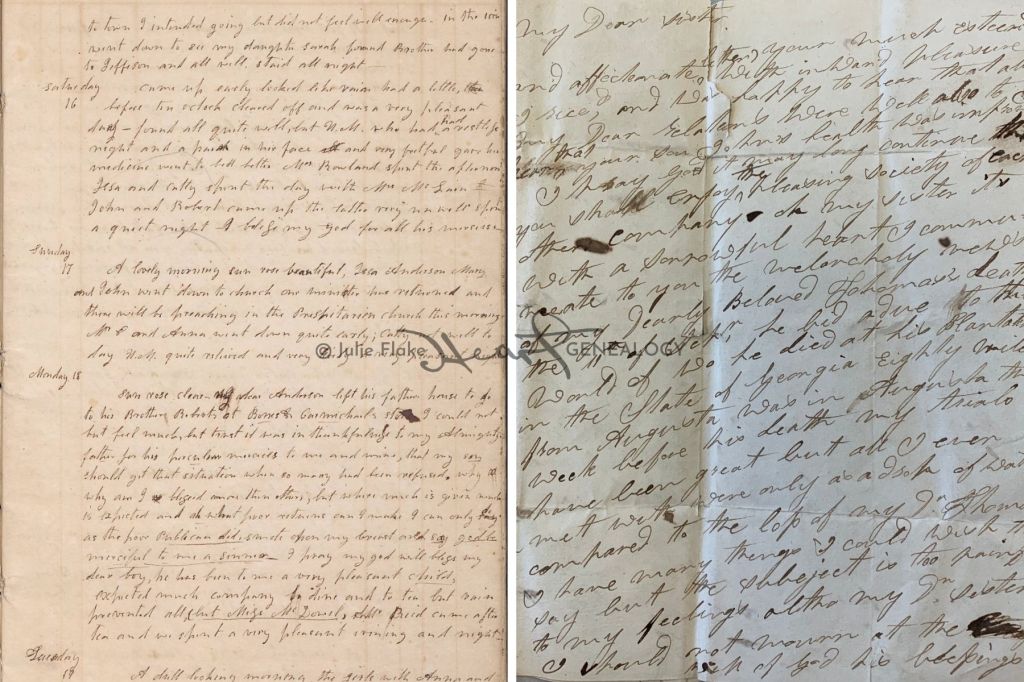 to town I intended going but did not feel well enough. in the
went down to see my daughter Sarah found Brother had gone
to Jefferson and all well. staid all night
Saturday
16
came up early looked like rain had a little,
before ten oclock cleared off and was a very pleasant
day - found all quite well, but N.M. who had had a restless
night and a pain in his face and very fretful gave him
medicine went to bed better Mrs Rowland spent the afternoon
spent the day with Mrs Mc
John and Robert came up the latter very unwell spent
a quiet night I bless my god for all his mercies
Sunday
17
A lovely morning sun rose beautiful, Anderson Mary
and John went down to church our minister has returned and
there will be preaching in the Presbyterian church this morning
Mr and Anna went down quite early; well to
day N.M. quite relieved and very
Monday 18
Sun rose clear my dear Anderson left his father house to go
to his Brother Roberts at Bones & Carmichaels store I could not
but feel much, but trust it was in thankfulness to my Almighty
father for his peculiar mercies to me and mine, that my son
should get that situation when so many had been refused, why
why am I blessed more than others, but where much is given much
is expected and oh what poor returns can I make I can only
as the poor Publican did, smite upon my breast and say god be
merciful to me a sinner I pray my god will bless my
dear boy, he has been to me a very pleasant child,
expected much company to dine and to tea but rain
prevented all, but Miss Mc Reid came after
tea and we spent a very pleasant evening and night
Tuesday
19
A dull looking morning the girls with Anna and
My Dear sister
and affectionate letter your much esteem
I recd, and with inward pleasure
was happy to hear that all
my Dear Relations were well also to
hear that your son John's health was improv
I pray God it may long continue
you should enjoy the pleasing society of each
others company, oh my sister it is
with a sorrowful heart I commun
icate to you the melancholy
of my Dearly Beloved Thomas's death
the he bid adue to this
World of Wo he died at his Plantation
in the State of Georgia Eighty mile
from Augusta was in Augusta the
week before his death my trials
have been great but all I ever
met with were only as a drop of wat
compared to the loss of my Dr Thom
I have many things I could wish to
say but the subeject is too painf
to my feelings altho my Dr sister
I should not mourn at the
of God his blessings
© Julie Flake Heart GENEALOGY